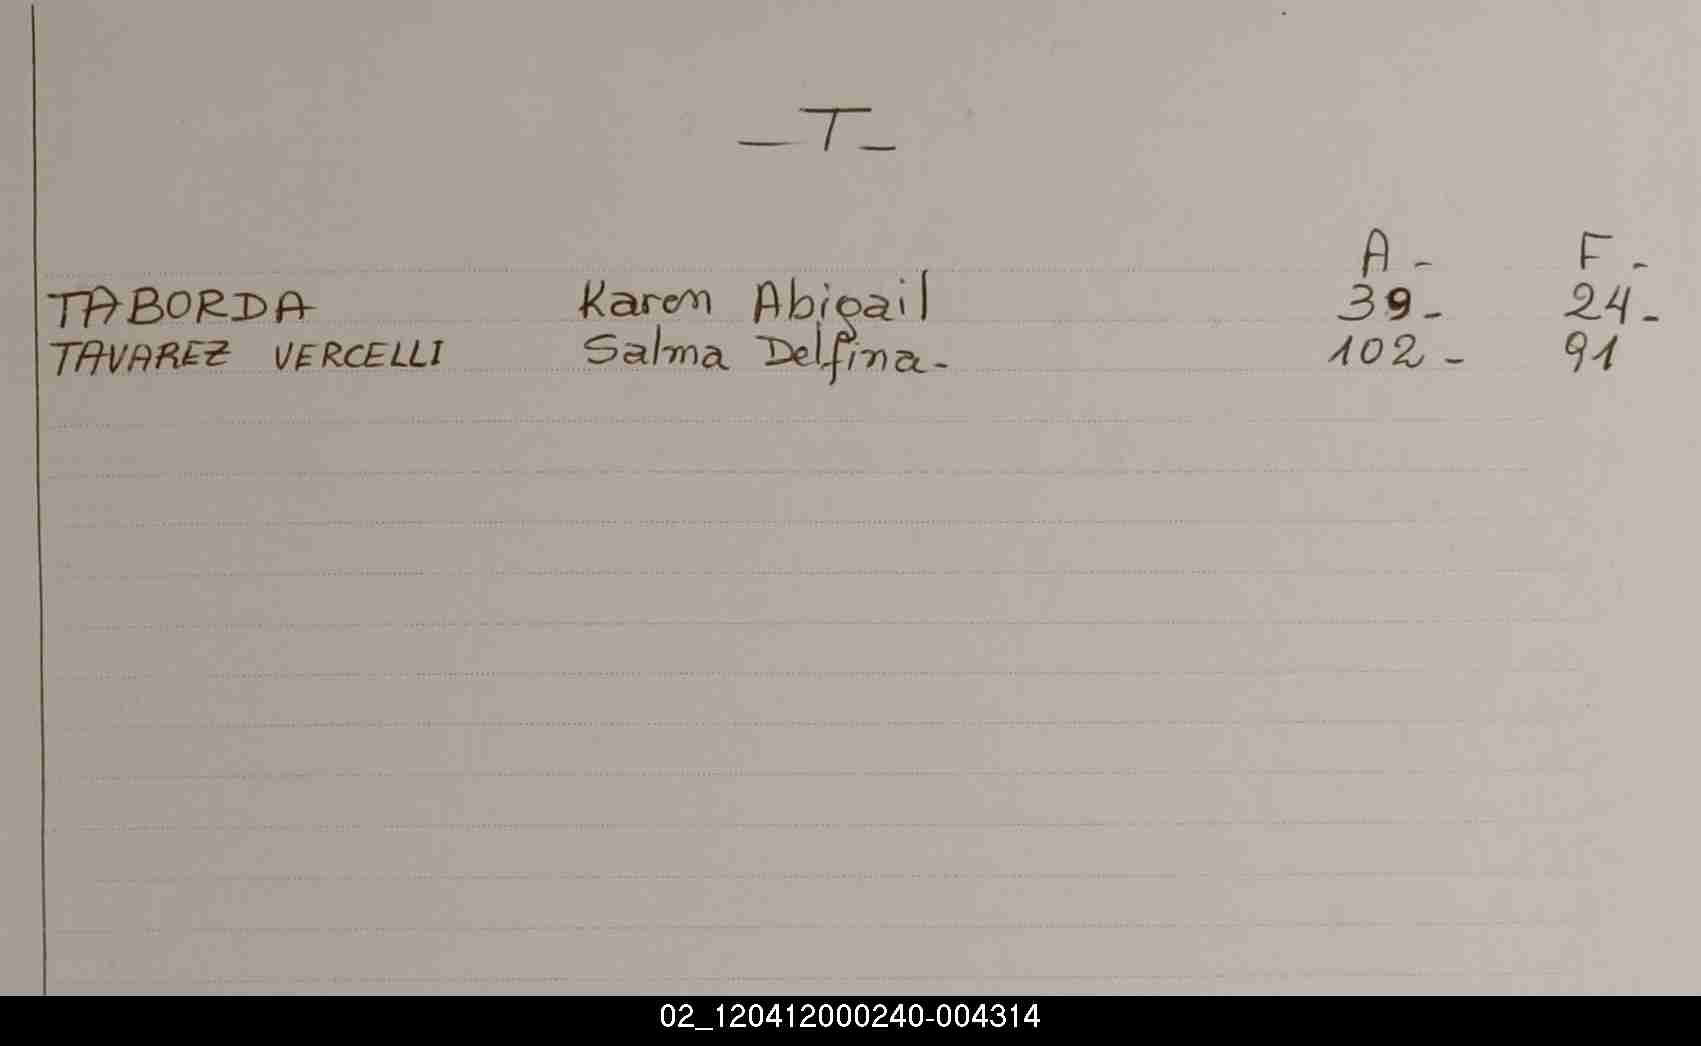 _T_
A - F -
TABORDA Karen Abigail 39- 24-
TAVAREZ VERCELLI Salma Delfina- 102- 91
02_120412000240-004314